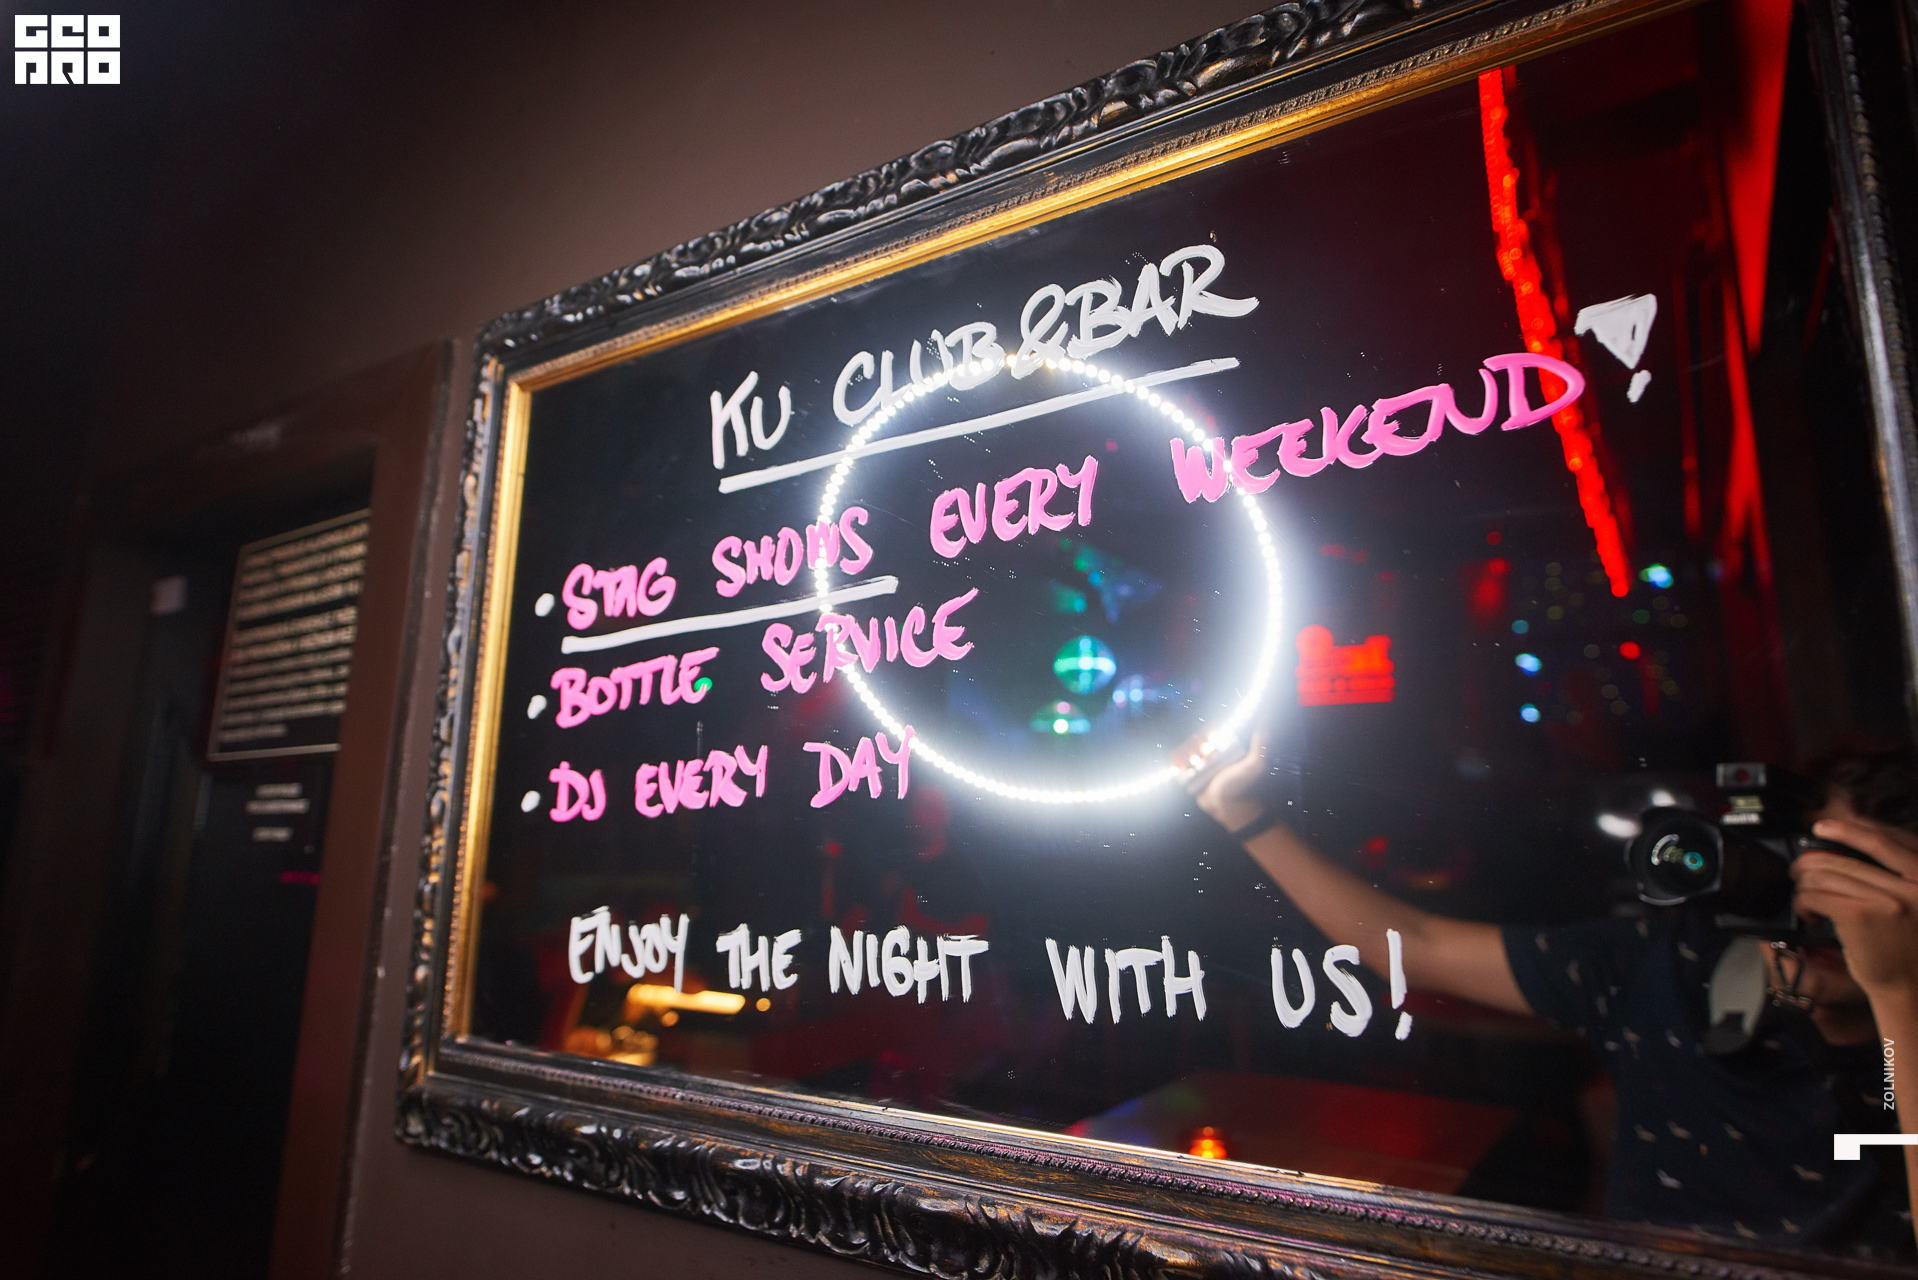 GEO
PRO
KU CLUB & BAR
• STAG SHOWS EVERY WEEKEND!
• BOTTLE SERVICE
• DJ EVERY DAY
ENJOY THE NIGHT WITH US!
ZOLNIKOV